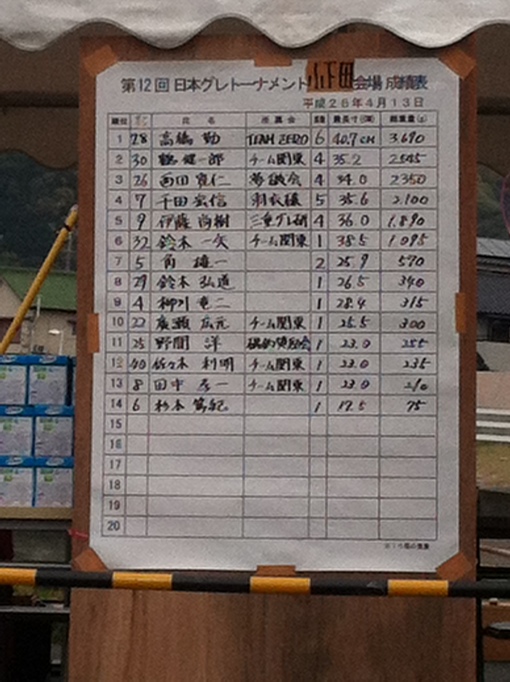 第12回 日本グレトーナメント 小下田 会場 成績表
平成26年4月13日
順位 氏名 所属会 最長寸(㎝) 総重量(g)
1 28 高橋 勤 TEAM ZERO 6 40.7cm 3.690
2 30 健一郎 チーム関東 4 35.2
3 26 西田 寛仁 4 34.0 2350
4 7 千田 宏信 5 35.6 2.100
5 9 伊藤 尚樹 三重グレ研 4 36.0 1.890
6 32 鈴木 一矢 チーム関東 1 38.5 1.095
7 5 角 雄一 2 25.9 570
8 29 鈴木 弘道 1 26.5 340
9 4 柳川 竜二 1 28.4 315
10 22 廣瀬 広元 チーム関東 1 25.5 300
11 25 野間 洋 1 23.0 255
12 40 佐々木 利明 チーム関東 1 23.0 235
13 8 田中 一 チーム関東 1 23.0 210
14 6 杉本 篤紀 1 17.5 75
15
16
17
18
19
20